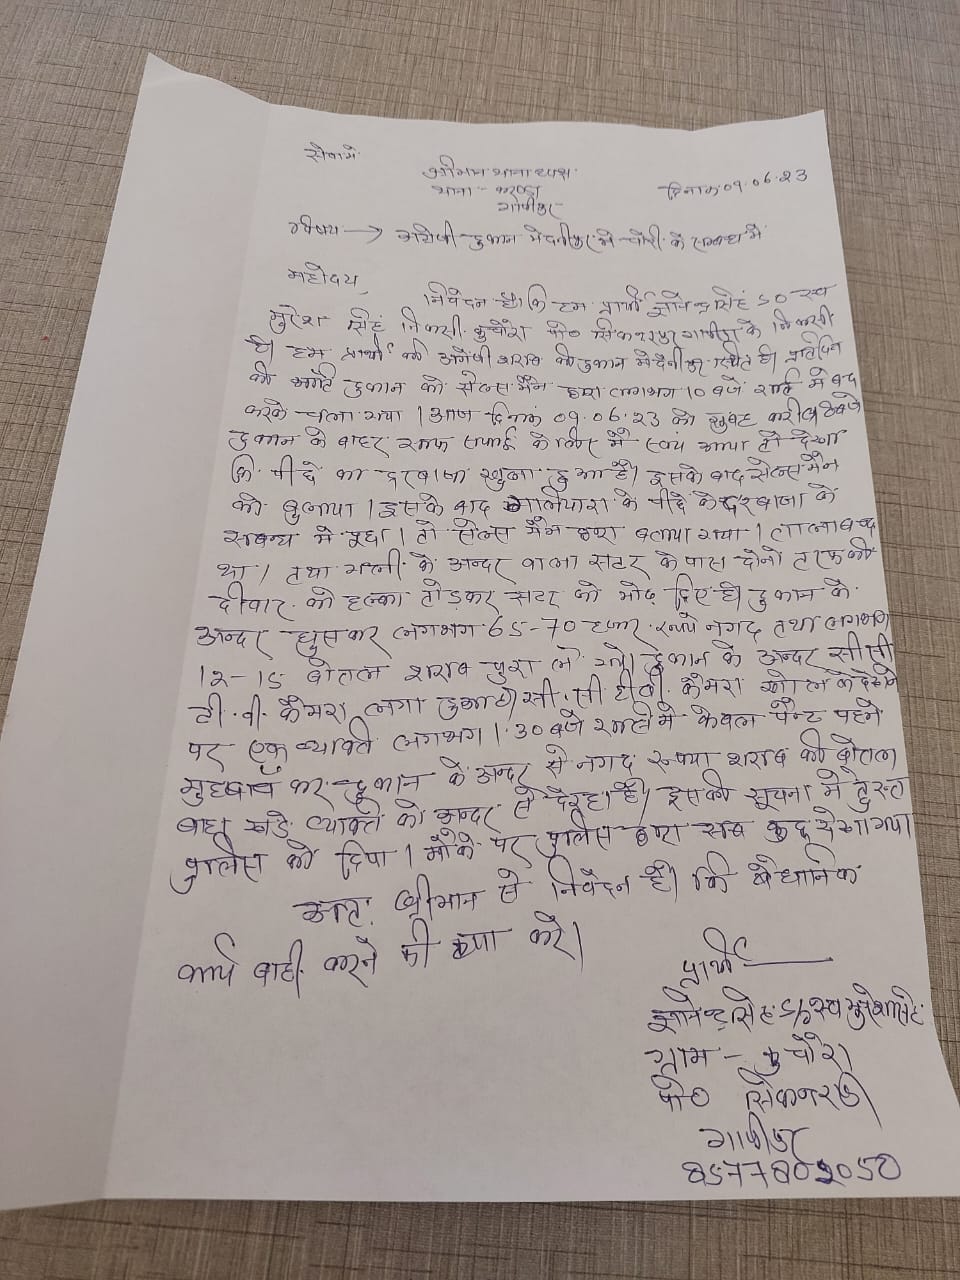 सेवामे
श्रीमान थानाध्यक्ष
थाना - करण्डा दिनांक 09.06.23
गाजीपुर
विषय → अंग्रेजी दुकान मेदनीपुर मे चोरी के सम्बन्ध मे
महोदय,
निवेदन है। कि हम प्रार्थी ज्ञानेन्द्र सिंह S0 स्व
सुरेश सिंह निवासी कुचौरा पो० सिकन्दरपुर गाजीपुर के निवासी
है। हम प्रार्थी की अंग्रेजी शराब की दुकान मेदनीपुर स्थित है। प्रतिदिन
की भांति दुकान को सेल्स मैन द्वारा लगभग 10 बजे रात्रि मे बन्द
करके चला गया। आज दिनांक 09.06.23 को सुबह करीब बजे
दुकान के बाहर साफ सफाई के लिए मै स्वयं आया तो देखा
कि पीछे का दरवाजा खुला हुआ है। इसके बाद सेल्स मैन
को बुलाया। इसके बाद के पीछे के दरवाजा के
सबन्ध मे पूछा। तो सेल्स मैन द्वारा बताया गया। तालाबन्द
था। तथा गली के अन्दर वाला सटर के पास दोनो तरफ की
दीवार को हल्का तोड़कर सटर को मोड़ दिए है। दुकान के
अन्दर घुसकर लगभग 65-70 हजार रूपये नगद तथा लगभग
12-15 बोतल शराब चुरा ले गये। दुकान के अन्दर सी सी
टी.वी. कैमरा लगा हुआ है। सी.सी टीवी. कैमरा खोल के देखने
पर एक व्यक्ति लगभग 1.30 बजे रात्रि मे केवल पैन्ट पहने
मुह बांध कर दुकान के अन्दर से नगद रूपया शराब की बोतल
बाहर खड़े व्यक्ति को अन्दर से दे रहा है। इसकी सूचना मे तुरन्त
पुलिस को दिया। मौके पर पुलिस द्वारा सब कुछ देखा गया
अतः श्रीमान से निवेदन है। कि बैधानिक
कार्य वाही करने की कृपा करे।
प्रार्थी
ज्ञानेन्द्र सिंह S/o स्व सुरेश सिंह
ग्राम - कुचौरा
पो० सिकन्दरपुर
गाजीपुर